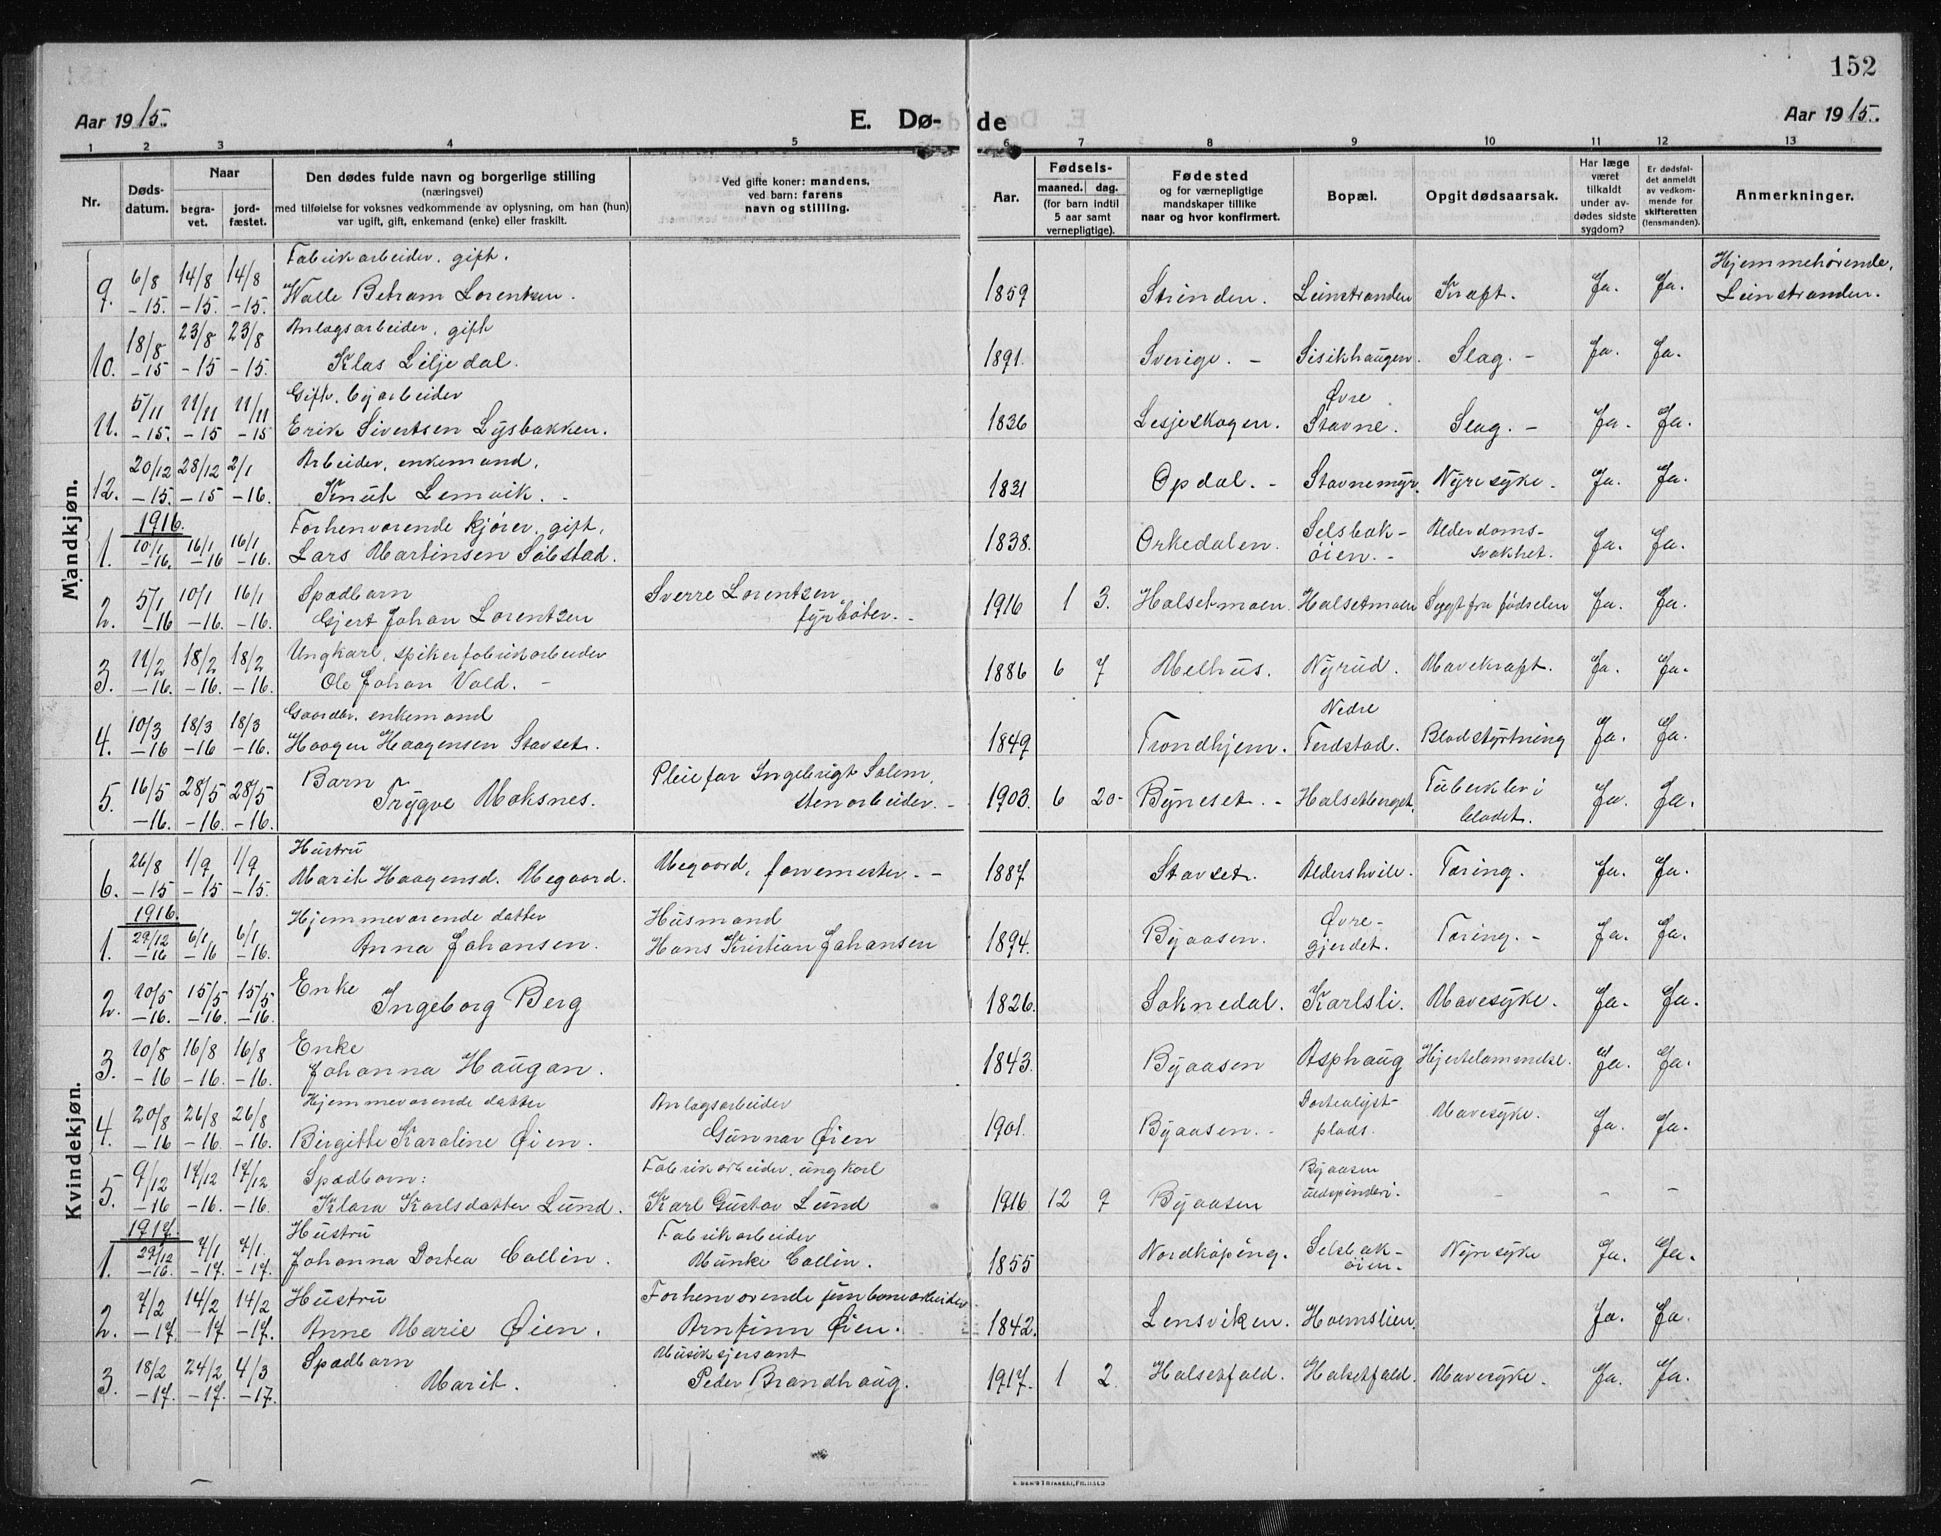 152
Aar 1915.
E. Dø-
de
Aar 1915.
1 2 3 4 5 6 7 8 9 10 11 12 13
Nr.
Døds-
datum.
Naar
begra-
vet.
jord-
fæstet.
Den dødes fulde navn og borgerlige stilling
(næringsvei)
med tilføielse for voksnes vedkommende av oplysning, om han (hun)
var ugift, gift, enkemand (enke) eller fraskilt.
Ved gifte koner: mandens,
ved barn: farens
navn og stilling.
Aar.
Fødsels-
maaned. dag.
(for barn indtil
5 aar samt
vernepligtige).
Fødested
og for værnepligtige
mandskaper tillike
naar og hvor konfirmert.
Bopæl.
Opgit dødsaarsak.
Har læge
været
tilkaldt
under av-
dødes sidste
sygdom?
Er dødsfal-
det anmeldt
av vedkom-
mende for
skifteretten
(lensmanden).
Anmerkninger.
Mandkjøn.
Fabrikarbeider, gift.
9. 6/8 -15. 14/8 -15. 14/8 -15. Walle Betram Lorentsen. 1859 Strinden. Leinstranden Kræft. Ja. Ja. Hjemmehørende,
Leinstranden.
Anlagsarbeider, gift
10. 18/8 -15 23/8 -15 23/8 -15. Klas Liljedal. 1891. Sverige. - Sisikhaugen. Slag. - Ja. Ja.
Gift. byarbeider
11. 5/11 -15. 11/11 -15 11/11 -15 Erik Sivertsen Lysbakken. 1836 Lesjeskogen. Øvre
Stavne. Slag. - Ja. Ja.
Arbeider, enkemand.
12. 20/12 -15. 28/12 -15 2/1 -16. Knut Lemvik. - 1831 Opdal. - Stavnemyr. Nyresyke. Ja. Ja.
1916. Forhenværende kjører, gift.
1. 10/1 -16. 16/1 -16 16/1 -16. Lars Martinsen Solstad. 1838. Orkedalen. Selsbak-
øien. - Alderdoms-
svakhet. Ja. Ja.
Spædbarn Sverre Lorentzen
2. 5/1 -16 10/1 -16. 16/1 -16. Gjert Johan Lorentzen fyrbøter. - 1916 1 3. Halsetmoen. Halsetmoen Sygt fra fødselen Ja. Ja.
Ungkarl, spikerfabrikarbeider
3. 11/2 -16. 18/2 -16. 18/2 -16. Ole Johan Vold. - 1886 6 7 Melhus. Nyrud. Mavekræft. Ja. Ja.
Gaardbr. enkemand
4. 10/3 -16 18/3 -16 18/3 -16. Haagen Haagensen Stavset. 1849 Trondhjem. Nedre
Ferstad. Blodstyrtning Ja. Ja.
Barn Pleiefar Ingebrigt Solem,
5. 16/5 -16. 28/5 -16. 28/5 -16. Trygve Moksnes. stenarbeider. - 1903. 6 20- Byneset. - Halsetberget. Tuberkler i
blodet. Ja. Ja.
Kvindekjøn.
Hustru
6. 26/8 -15 1/9 -15 1/9 -15. Marit Haagensd. Megaard. Megaard, farvemester. - 1887 Stavset. Aldershvile. Tæring. Ja. Ja.
1916. Hjemmeværende datter Husmand
1. 29/12 -16 6/1 -16 6/1 -16. Anna Johansen. Hans Kristian Johansen 1894. Byaasen. Øvre-
gjerdet. Tæring. - Ja. Ja.
Enke
2. 10/5 -16. 15/5 -16. 15/5 -16 Ingeborg Berg 1826. Soknedal. Karlsli. Mavesyke. Ja. Ja.
Enke
3. 10/8 -16 16/8 -16. 16/8 -16. Johanna Haugan. 1843. Byaasen Asphaug Hjertelammelse. Ja. Ja.
Hjemmeværende datter Anlagsarbeider
4. 20/8 -16 26/8 -16. 26/8 -16. Birgitte Karoline Øien. Gunnar Øien 1901. Byaasen. - Dortealyst-
plads. Mavesyke. Ja. Ja.
Spædbarn: Fabrikarbeider, ungkarl
5. 9/12 -16 17/12 -16. 17/12 -16. Klara Karlsdatter Lund. Karl Gustav Lund 1916 12 9 Byaasen Byaasen
uldspinderi. - - -
1917. Hustru Fabrikarbeider
1. 29/12 -16. 7/1 -17. 7/1 -17. Johanna Dortea Collin. Munke Collin. 1855 Nordkøping. Selsbak-
øien. Nyresyke Ja. Ja.
Hustru Forhenværende jernbanearbeider
2. 7/2 -17. 14/2 -17 14/2 -17. Anne Marie Øien. Arnfinn Øien. 1842. Lensviken. Havmslien. Ja. Ja.
Spædbarn Musiksjersant
3. 18/2 -17. 24/2 -17. 4/3 -17. Marit. Peder Brandhaug. 1917. 1 2. Halsetfald. Halsetfald. Mavesyke. Ja. Ja.